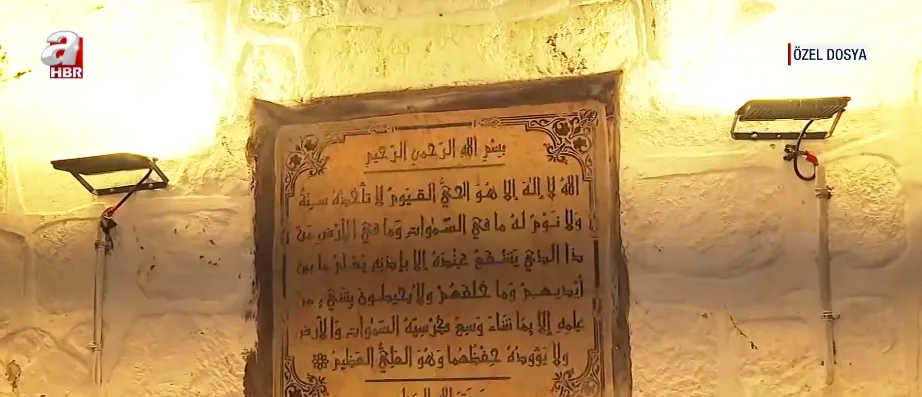 a
HBR
ÖZEL DOSYA
بِسْمِ اللهِ الرَّحْمٰنِ الرَّحِيْمِ
اَللهُ لَا اِلٰهَ اِلَّا هُوَ الْحَيُّ الْقَيُّومُ لَا تَأْخُذُهُ سِنَةٌ
وَلَا نَوْمٌ لَهُ مَا فِي السَّمٰوَاتِ وَمَا فِي الْاَرْضِ مَنْ
ذَا الَّذِي يَشْفَعُ عِنْدَهُ اِلَّا بِاِذْنِهِ يَعْلَمُ مَا بَيْنَ
اَيْدِيهِمْ وَمَا خَلْفَهُمْ وَلَا يُحِيطُونَ بِشَيْءٍ مِنْ
عِلْمِهِ اِلَّا بِمَا شَاءَ وَسِعَ كُرْسِيُّهُ السَّمٰوَاتِ وَالْاَرْضَ
وَلَا يَؤُودُهُ حِفْظُهُمَا وَهُوَ الْعَلِيُّ الْعَظِيمُ